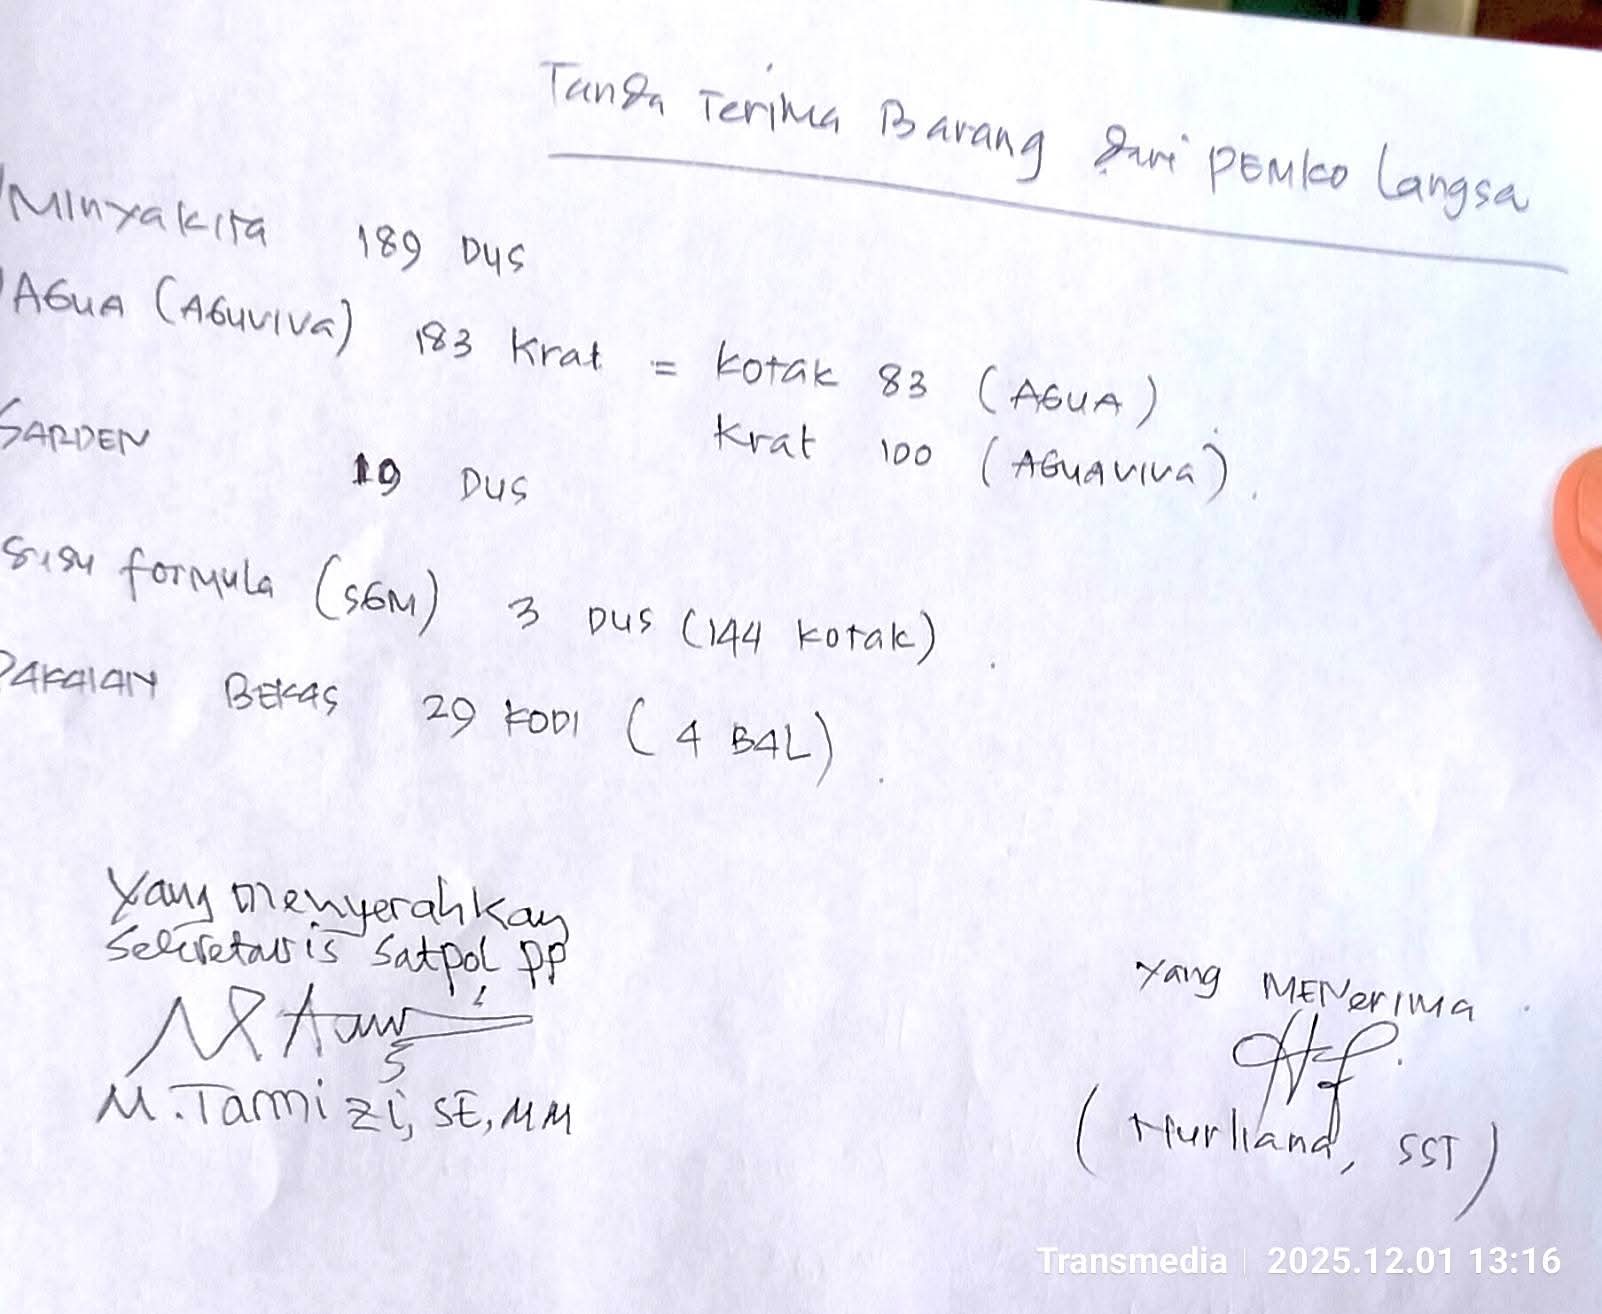 Tanda Terima Barang dari PEMko Langsa
Minyakita 189 Dus
AGUA (AGUVIVA) 183 Krat = kotak 83 (AGUA)
Krat 100 (AGUAVIVA).
SARDEN 19 DUS
susu formula (SGM) 3 DUS (144 kotak).
PAKAIAN BEKAS 29 KODI (4 BAL).
Yang menyerahkan
Sekretaris Satpol PP
M. Tarmizi, SE, MM
Yang MENerima
(Nurliana, SST)
Transmedia | 2025.12.01 13:16